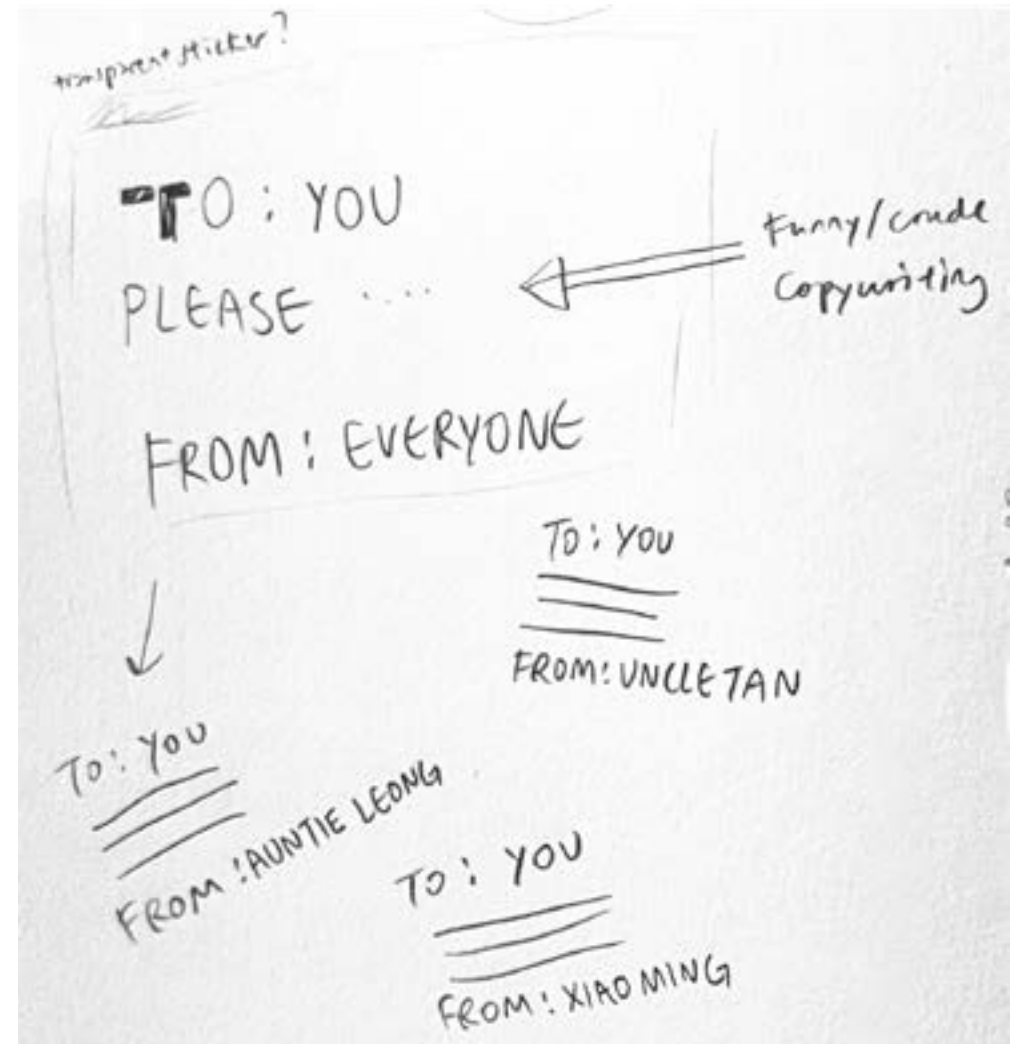 transparent sticker?
TO: YOU
PLEASE ....
Funny/crude
Copywriting
FROM: EVERYONE
TO: YOU
FROM: UNCLE TAN
TO: YOU
FROM: AUNTIE LEONG
TO: YOU
FROM: XIAO MING